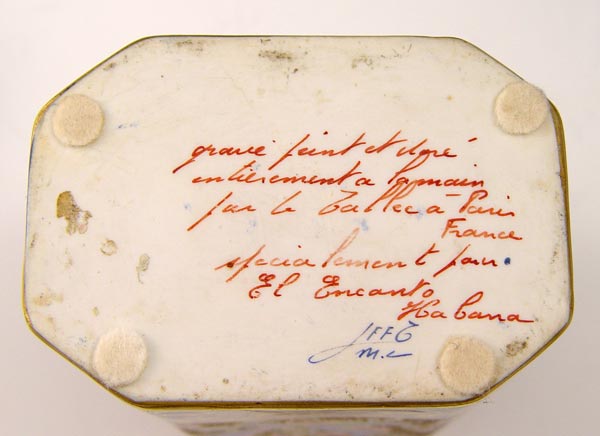 gravé peint et doré
entièrement a la main
par le Tallec à Paris
France
spécialement pour
El Encanto
Habana
FFT
m.c